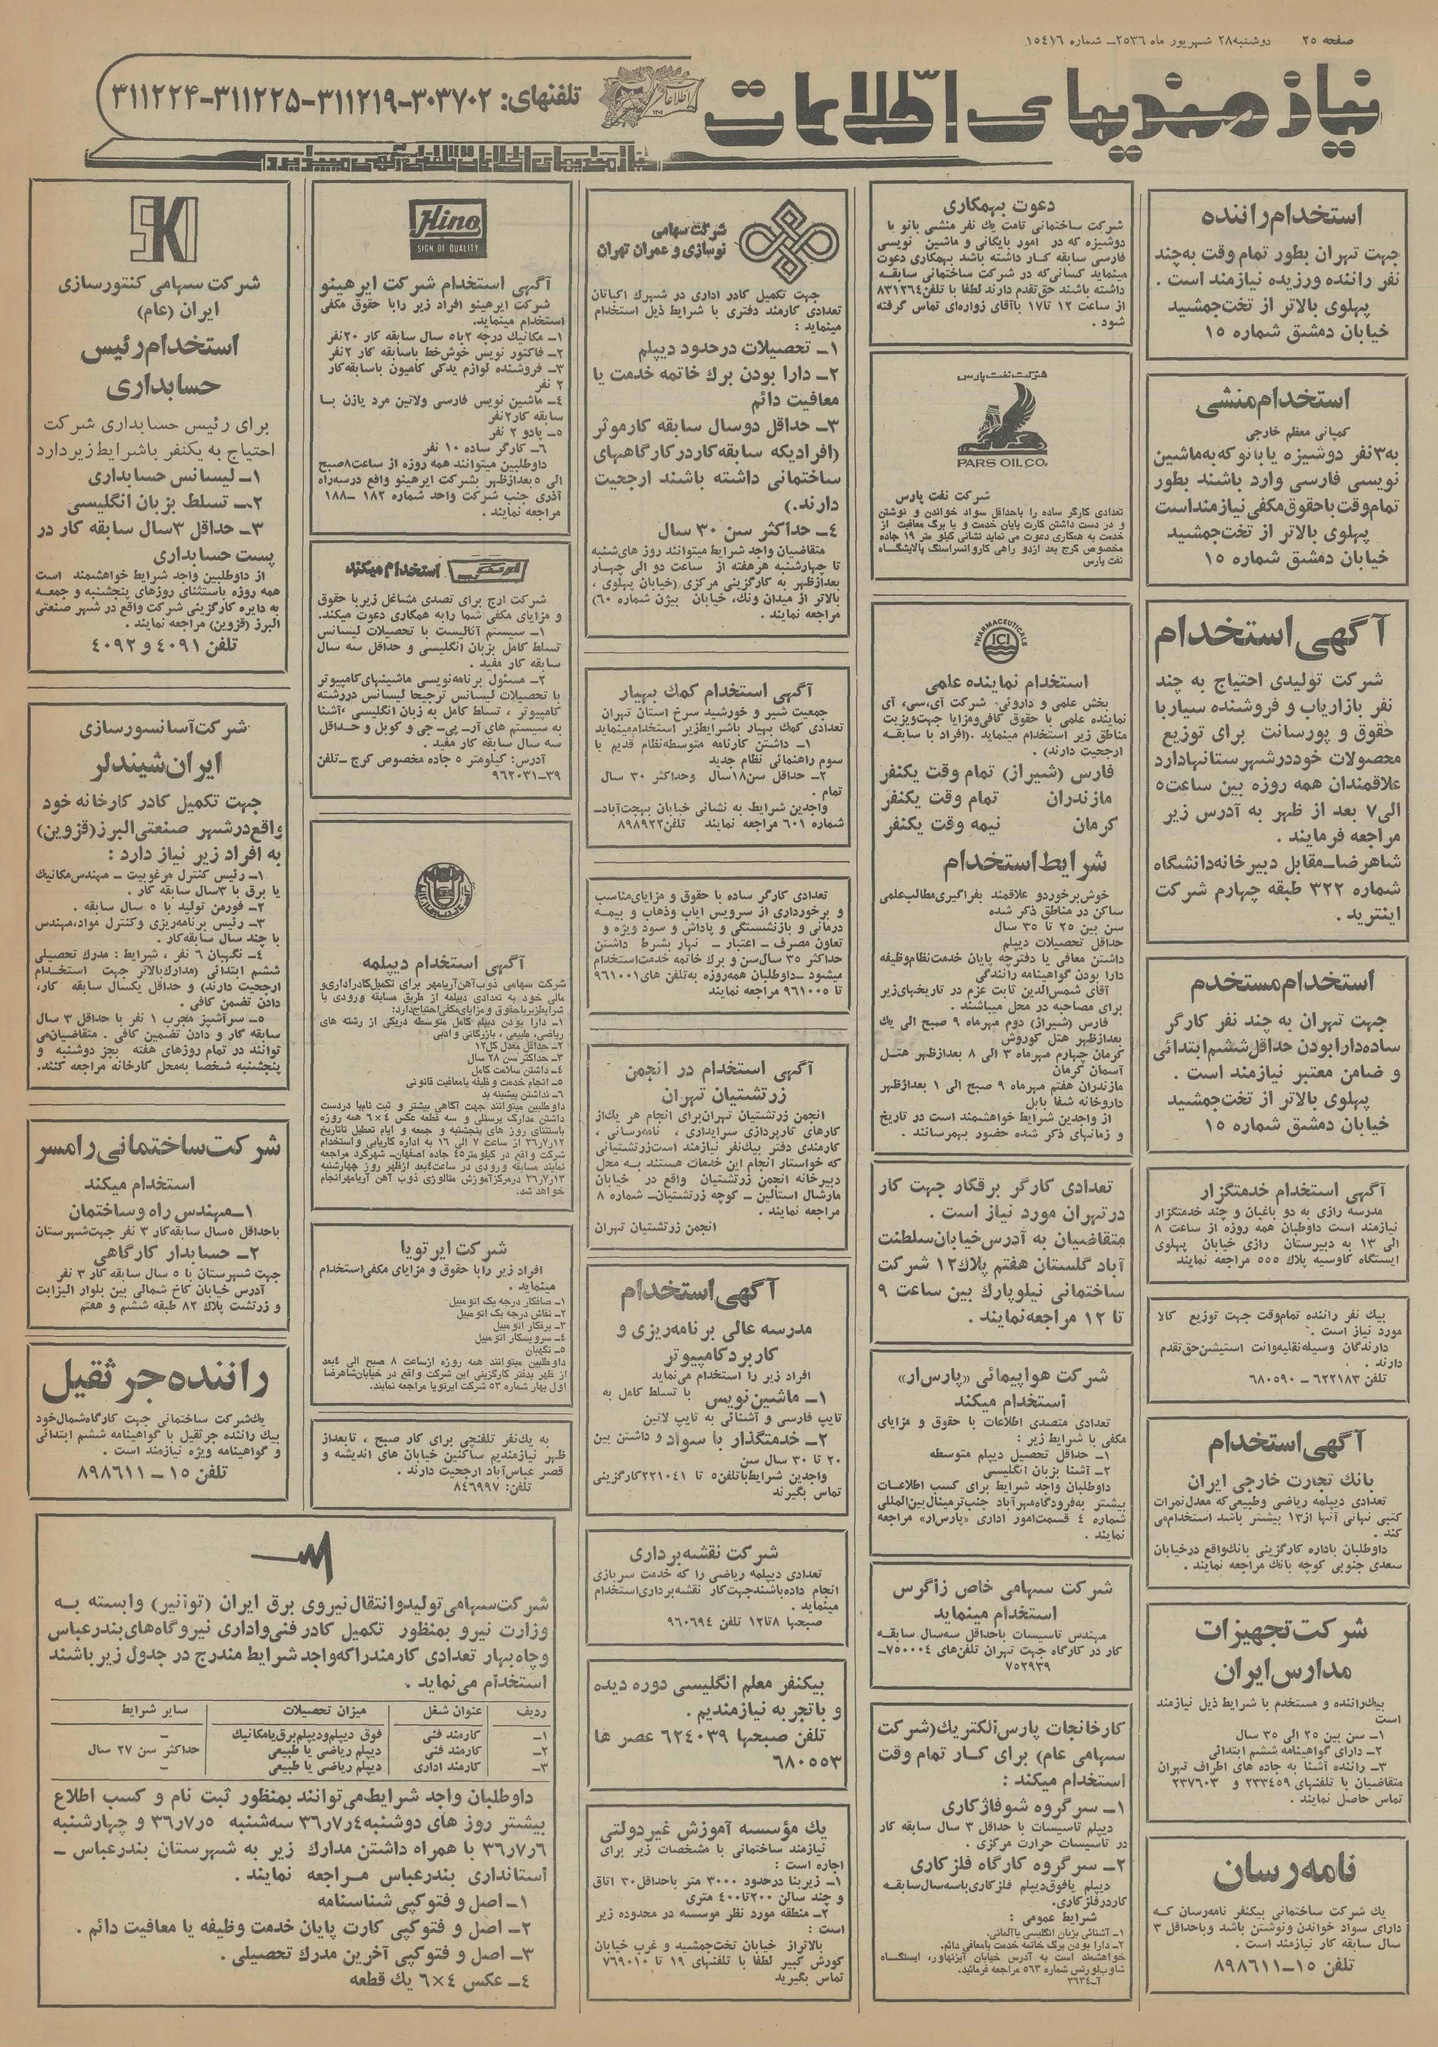 صفحه ۲۵ دوشنبه ۲۸ شهریور ماه ۲۵۳۶ـ شماره ۱۵۴۱۶
نیازمندیهای اطلاعات
تلفنهای: ۳۰۳۷۰۲-۳۱۱۲۱۹-۳۱۱۲۲۵-۳۱۱۲۲۴
نیازمندیهای اطلاعات تلفنی آگهی میپذیرد
استخدام راننده
جهت تهران بطور تمام وقت به چند
نفر راننده ورزیده نیازمند است .
پهلوی بالاتر از تخت‌جمشید
خیابان دمشق شماره ۱۵
استخدام منشی
کمپانی معظم خارجی
به ۳ نفر دوشیزه یا بانو که به ماشین
نویسی فارسی وارد باشند بطور
تمام وقت با حقوق مکفی نیازمند است
پهلوی بالاتر از تخت‌جمشید
خیابان دمشق شماره ۱۵
آگهی استخدام
شرکت تولیدی احتیاج به چند
نفر بازاریاب و فروشنده سیار با
حقوق و پورسانت برای توزیع
محصولات خود در شهرستانها دارد
علاقمندان همه روزه بین ساعت ۵
الی ۷ بعد از ظهر به آدرس زیر
مراجعه فرمایند .
شاهرضا ـ مقابل دبیرخانه دانشگاه
شماره ۳۲۲ طبقه چهارم شرکت
اینترید .
استخدام مستخدم
جهت تهران به چند نفر کارگر
ساده دارا بودن حداقل ششم ابتدائی
و ضامن معتبر نیازمند است .
پهلوی بالاتر از تخت‌جمشید
خیابان دمشق شماره ۱۵
آگهی استخدام خدمتگزار
مدرسه رازی به دو باغبان و چند خدمتگزار
نیازمند است داوطبان همه روزه از ساعت ۸
الی ۱۳ به دبیرستان رازی خیابان پهلوی
ایستگاه کاوسیه پلاک ۵۵۵ مراجعه نمایند
بیک نفر راننده تمام‌وقت جهت توزیع کالا
مورد نیاز است .
دارندگان وسیله نقلیه وانت استیشن حق تقدم
دارند .
تلفن ۶۲۲۱۸۳ – ۶۸۰۵۹۰
آگهی استخدام
بانک تجارت خارجی ایران
تعدادی دیپلمه ریاضی و طبیعی که معدل نمرات
کتبی نهائی آنها از ۱۳ بیشتر باشد استخدام می
کند .
داوطلبان باداره کارگزینی بانک واقع در خیابان
سعدی جنوبی کوچه بانک مراجعه نمایند .
شرکت تجهیزات
مدارس ایران
بیک راننده و مستخدم با شرایط ذیل نیازمند
است
۱ـ سن بین ۲۵ الی ۳۵ سال
۲ـ دارای گواهینامه ششم ابتدائی
۳ـ راننده آشنا به جاده های اطراف تهران
متقاضیان با تلفنهای ۲۳۳۴۵۹ و ۲۳۷۶۰۳
تماس حاصل نمایند .
نامه رسان
یک شرکت ساختمانی بیکنفر نامه‌رسان که
دارای سواد خواندن و نوشتن باشد و با حداقل ۳
سال سابقه کار نیازمند است .
تلفن ۱۵ـ۸۹۸۶۱۱
دعوت بهمکاری
شرکت ساختمانی تامت یک نفر منشی بانو یا
دوشیزه که در امور بایگانی و ماشین نویسی
فارسی سابقه کار داشته باشد بهمکاری دعوت
مینماید کسانی که در شرکت ساختمانی سابقه
داشته باشند حق تقدم دارند لطفا با تلفن ۸۳۱۲۶۴
از ساعت ۱۲ تا ۱۷ باآقای زواره‌ای تماس گرفته
شود .
شرکت نفت پارس
PARS OIL CO.
شرکت نفت پارس
تعدادی کارگر ساده را با حداقل سواد خواندن و نوشتن
و در دست داشتن کارت پایان خدمت و یا برگ معافیت از
خدمت به همکاری دعوت می نماید نشانی کیلو متر ۱۹ جاده
مخصوص کرج بعد از دو راهی کاروانسراسنگ پالایشگاه
نفت پارس
PHARMACEUTICALS
ICI
استخدام نماینده علمی
بخش علمی و داروئی شرکت آی،سی، آی
نماینده علمی با حقوق کافی و مزایا جهت ویزیت
مناطق زیر استخدام مینماید .(افراد با سابقه
ارجحیت دارند) .
فارس (شیراز) تمام وقت یکنفر
مازندران تمام وقت یکنفر
کرمان نیمه وقت یکنفر
شرایط استخدام
خوش برخورد و علاقمند بفراگیری مطالب علمی
ساکن در مناطق ذکر شده
سن بین ۲۵ تا ۳۵ سال
حداقل تحصیلات دیپلم
داشتن معافی یا دفترچه پایان خدمت نظام وظیفه
دارا بودن گواهینامه رانندگی
آقای شمس‌الدین ثابت عزم در تاریخهای زیر
برای مصاحبه در محل میباشند .
فارس (شیراز) دوم مهرماه ۹ صبح الی یک
بعدازظهر هتل کوروش
کرمان چهارم مهرماه ۳ الی ۸ بعدازظهر هتل
آسمان کرمان
مازندران هفتم مهرماه ۹ صبح الی ۱ بعدازظهر
داروخانه شفا بابل
از واجدین شرایط خواهشمند است در تاریخ
و زمانهای ذکر شده حضور بهم رسانند .
تعدادی کارگر برقکار جهت کار
در تهران مورد نیاز است .
متقاضیان به آدرس خیابان سلطنت
آباد گلستان هفتم پلاک ۱۲ شرکت
ساختمانی نیلوپارک بین ساعت ۹
تا ۱۲ مراجعه نمایند .
شرکت هواپیمائی «پارس‌ار»
استخدام میکند
تعدادی متصدی اطلاعات با حقوق و مزایای
مکفی با شرایط زیر :
۱ـ حداقل تحصیل دیپلم متوسطه
۲ـ آشنا بزبان انگلیسی
داوطلبان واجد شرایط برای کسب اطلاعات
بیشتر به فرودگاه مهرآباد جنب ترمینال بین‌المللی
شماره ۴ قسمت امور اداری «پارس‌ار» مراجعه
نمایند .
شرکت سهامی خاص زاگرس
استخدام مینماید
مهندس تاسیسات باحداقل سه سال سابقه
کار در کارگاه جهت تهران تلفن‌های ۷۵۰۰۰۴ـ
۷۵۲۹۳۹
کارخانجات پارس الکتریک (شرکت
سهامی عام) برای کار تمام وقت
استخدام میکند :
۱ـ سرگروه شوفاژکاری
دیپلم تاسیسات با حداقل ۳ سال سابقه کار
در تاسیسات حرارت مرکزی .
۲ـ سرگروه کارگاه فلزکاری
دیپلم یا فوق دیپلم فلزکاری با سه سال سابقه
کار در فلزکاری .
شرایط عمومی :
۱ـ آشنائی بزبان انگلیسی یا آلمانی.
۲ـ دارا بودن برگ خاتمه خدمت یا معافی دائم.
خواهشمند است به آدرس خیابان آیزنهاور، ایستگاه
شاوب‌لورنس شماره ۵۶۳ مراجعه فرمائید.
آـ۳۶۳۴
شرکت سهامی
نوسازی و عمران تهران
جهت تکمیل کادر اداری در شهرک اکباتان
تعدادی کارمند دفتری با شرایط ذیل استخدام
مینماید :
۱ـ تحصیلات در حدود دیپلم
۲ـ دارا بودن برگ خاتمه خدمت یا
معافیت دائم
۳ـ حداقل دو سال سابقه کار موثر
(افرادیکه سابقه کار در کارگاههای
ساختمانی داشته باشند ارجحیت
دارند.)
۴ـ حداکثر سن ۳۰ سال
متقاضیان واجد شرایط میتوانند روز های شنبه
تا چهارشنبه هر هفته از ساعت دو الی چهار
بعدازظهر به کارگزینی مرکزی (خیابان پهلوی ،
بالاتر از میدان ونک، خیابان بیژن شماره ۶۰)
مراجعه نمایند .
آگهی استخدام کمک بهیار
جمعیت شیر و خورشید سرخ استان تهران
تعدادی کمک بهیار با شرایط زیر استخدام مینماید
۱ـ داشتن کارنامه متوسطه نظام قدیم یا
سوم راهنمائی نظام جدید
۲ـ حداقل سن ۱۸ سال وحداکثر ۳۰ سال
تمام .
واجدین شرایط به نشانی خیابان بهجت‌آباد ـ
شماره ۶۰۱ مراجعه نمایند تلفن ۸۹۸۹۲۲
تعدادی کارگر ساده با حقوق و مزایای مناسب
و برخورداری از سرویس ایاب و ذهاب و بیمه
درمانی و بازنشستگی و پاداش و سود ویژه و
تعاون مصرف ـ اعتبار ـ نهار بشرط داشتن
حداکثر ۳۵ سال سن و برگ خاتمه خدمت استخدام
میشود ـ داوطلبان همه‌روزه به تلفن های ۹۶۱۰۰۱
تا ۹۶۱۰۰۵ مراجعه نمایند
آگهی استخدام در انجمن
زرتشتیان تهران
انجمن زرتشتیان تهران برای انجام هر یک از
کارهای کارپردازی سرایداری ، نامه‌رسانی ،
کارمندی دفتر بیک نفر نیازمند است زرتشتیانی
که خواستار انجام این خدمات هستند به محل
دبیرخانه انجمن زرتشتیان واقع در خیابان
مارشال استالین ـ کوچه زرتشتیان ـ شماره ۸
مراجعه نمایند .
انجمن زرتشتیان تهران
آگهی استخدام
مدرسه عالی برنامه‌ریزی و
کاربرد کامپیوتر
افراد زیر را استخدام می‌نماید
۱ـ ماشین‌نویس با تسلط کامل به
تایپ فارسی و آشنائی به تایپ لاتین
۲ـ خدمتگذار با سواد و داشتن بین
۲۰ تا ۳۰ سال سن
واجدین شرایط با تلفن ۵ تا ۲۲۱۰۴۱ کارگزینی
تماس بگیرند
شرکت نقشه‌برداری
تعدادی دیپلمه ریاضی را که خدمت سربازی
انجام داده باشند جهت کار نقشه‌برداری استخدام
مینماید .
صبحها ۸ تا ۱۲ تلفن ۹۶۰۶۹۴
بیکنفر معلم انگلیسی دوره دیده
و باتجربه نیازمندیم .
تلفن صبحها ۶۲۴۰۳۹ عصر ها
۶۸۰۵۵۳
یک مؤسسه آموزش غیردولتی
نیازمند ساختمانی با مشخصات زیر برای
اجاره است :
۱ـ زیربنا درحدود ۳۰۰۰ متر با حداقل ۳۰ اتاق
و چند سالن ۲۰۰ تا ۴۰۰ متری
۲ـ منطقه مورد نظر موسسه در محدوده زیر
است :
بالاتر از خیابان تخت‌جمشید و غرب خیابان
کورش کبیر لطفا با تلفنهای ۱۹ تا ۷۶۹۰۱۰
تماس بگیرید
Hino
SIGN OF QUALITY
آگهی استخدام شرکت ایرهینو
شرکت ایرهینو افراد زیر را با حقوق مکفی
استخدام مینماید.
۱ـ مکانیک درجه ۲ با ۵ سال سابقه کار ۲۰ نفر
۲ـ فاکتور نویس خوش‌خط با سابقه کار ۲ نفر
۳ـ فروشنده لوازم یدکی کامیون با سابقه کار
۲ نفر
۴ـ ماشین نویس فارسی و لاتین مرد یازن با
سابقه کار ۲ نفر
۵ـ پادو ۲ نفر
۶ـ کارگر ساده ۱۰ نفر
داوطلبین میتوانند همه روزه از ساعت ۸ صبح
الی ۵ بعدازظهر بشرکت ایرهینو واقع در سه‌راه
آذری جنب شرکت واحد شماره ۱۸۲ـ ۱۸۸
مراجعه نمایند .
استخدام میکند
شرکت ارج برای تصدی مشاغل زیر با حقوق
و مزایای مکفی شما را به همکاری دعوت میکند.
۱ـ سیستم آنالیست با تحصیلات لیسانس
تسلط کامل بزبان انگلیسی و حداقل سه سال
سابقه کار مفید .
۲ـ مسئول برنامه‌نویسی ماشینهای کامپیوتر
با تحصیلات لیسانس ترجیحا لیسانس در رشته
کامپیوتر ، تسلط کامل به زبان انگلیسی ،آشنا
به سیستم های آر-پی-جی و کوبل و حداقل
سه سال سابقه کار مفید .
آدرس: کیلومتر ۵ جاده مخصوص کرج ـ تلفن
۹۶۲۰۳۱-۳۹
آگهی استخدام دیپلمه
شرکت سهامی ذوب آهن آریامهر برای تکمیل کادر اداری و
مالی خود به تعدادی دیپلمه از طریق مسابقه ورودی با
شرایط زیر با حقوق و مزایای مکفی احتیاج دارد:
۱ـ دارا بودن دیپلم کامل متوسطه در یکی از رشته های
ریاضی، طبیعی ، بازرگانی و ادبی
۲ـ حداقل معدل کل ۱۲
۳ـ حداکثر سن ۲۸ سال
۴ـ داشتن سلامت کامل
۵ـ انجام خدمت وظیفه یا معافیت قانونی
۶ـ نداشتن پیشینه بد
داوطلبین میتوانند جهت آگاهی بیشتر و ثبت نام با در دست
داشتن مدارک پرسنلی و سه قطعه عکس ۴×۶ همه روزه
باستثنای روز های پنجشنبه و جمعه و ایام تعطیل تا تاریخ
۳۶/۷/۱۲ از ساعت ۷ الی ۱۶ به اداره کاریابی و استخدام
شرکت واقع در کیلو متر ۴۵ جاده اصفهان ـ شهرکرد مراجعه
نمایند مسابقه ورودی در ساعت ۴ بعد ازظهر روز چهارشنبه
۳۶/۷/۱۳ در مرکز آموزش متالوژی ذوب آهن آریامهر انجام
خواهد شد.
شرکت ایرتویا
افراد زیر را با حقوق و مزایای مکفی استخدام
مینماید .
۱ـ صافکار درجه یک اتومبیل
۲ـ نقاش درجه یک اتومبیل
۳ـ برقکار اتومبیل
۴ـ سرویسکار اتومبیل
۵ـ نگهبان
داوطلبین میتوانند همه روزه ازساعت ۸ صبح الی ۴ بعد
از ظهر بدفتر کارگزینی این شرکت واقع در خیابان شاهرضا
اول بهار شماره ۵۳ شرکت ایرتویا مراجعه نمایند.
به یک‌نفر تلفنچی برای کار صبح ، تابعداز
ظهر نیازمندیم ساکنین خیابان های اندیشه و
قصر عباس‌آباد ارجحیت دارند .
تلفن: ۸۴۶۹۹۷
شرکت سهامی کنتورسازی
ایران (عام)
استخدام رئیس
حسابداری
برای رئیس حسابداری شرکت
احتیاج به یکنفر باشرایط زیر دارد
۱ـ لیسانس حسابداری
۲ـ تسلط بزبان انگلیسی
۳ـ حداقل ۳ سال سابقه کار در
پست حسابداری
از داوطلبین واجد شرایط خواهشمند است
همه روزه باستثنای روزهای پنجشنبه و جمعه
به دایره کارگزینی شرکت واقع در شهر صنعتی
البرز (قزوین) مراجعه نمایند .
تلفن ۴۰۹۱ و ۴۰۹۲
شرکت آسانسورسازی
ایران شیندلر
جهت تکمیل کادر کارخانه خود
واقع در شهر صنعتی البرز (قزوین)
به افراد زیر نیاز دارد :
۱ـ رئیس کنترل مرغوبیت ـ مهندس مکانیک
یا برق با ۳ سال سابقه کار .
۲ـ فورمن تولید با ۵ سال سابقه .
۳ـ رئیس برنامه‌ریزی و کنترل مواد،مهندس
با چند سال سابقه کار .
۴ـ نگهبان ۶ نفر ، شرایط : مدرک تحصیلی
ششم ابتدائی (مدارک بالاتر جهت استخدام
ارجحیت دارند) و حداقل یکسال سابقه کار،
دادن تضمین کافی .
۵ـ سرآشپز مجرب ۱ نفر با حداقل ۳ سال
سابقه کار و دادن تضمین کافی . متقاضیان می
توانند در تمام روزهای هفته بجز دوشنبه و
پنجشنبه شخصا به محل کارخانه مراجعه کنند.
شرکت ساختمانی رامسر
استخدام میکند
۱ـ مهندس راه و ساختمان
باحداقل ۵ سال سابقه کار ۳ نفر جهت شهرستان
۲ـ حسابدار کارگاهی
جهت شهرستان با ۵ سال سابقه کار ۳ نفر
آدرس خیابان کاخ شمالی بین بلوار الیزابت
و زرتشت پلاک ۸۲ طبقه ششم و هفتم
راننده جرثقیل
یک شرکت ساختمانی جهت کارگاه شمال خود
بیک راننده جرثقیل با گواهینامه ششم ابتدائی
و گواهینامه ویژه نیازمند است .
تلفن ۱۵ – ۸۹۸۶۱۱
شرکت سهامی تولید و انتقال نیروی برق ایران (توانیر) وابسته به
وزارت نیرو بمنظور تکمیل کادر فنی و اداری نیروگاه های بندرعباس
و چاه‌بهار تعدادی کارمند را که واجد شرایط مندرج در جدول زیر باشند
استخدام می‌نماید .
ردیف عنوان شغل میزان تحصیلات سایر شرایط
۱ـ کارمند فنی فوق دیپلم و دیپلم برق یا مکانیک –
۲ـ کارمند فنی دیپلم ریاضی یا طبیعی حداکثر سن ۲۷ سال
۳ـ کارمند اداری دیپلم ریاضی یا طبیعی –
داوطلبان واجد شرایط می‌توانند بمنظور ثبت نام و کسب اطلاع
بیشتر روز های دوشنبه ۳۶/۷/۴ سه‌شنبه ۳۶/۷/۵ و چهارشنبه
۳۶/۷/۶ با همراه داشتن مدارک زیر به شهرستان بندرعباس ـ
استانداری بندرعباس مراجعه نمایند .
۱ـ اصل و فتوکپی شناسنامه
۲ـ اصل و فتوکپی کارت پایان خدمت وظیفه یا معافیت دائم .
۳ـ اصل و فتوکپی آخرین مدرک تحصیلی .
۴ـ عکس ۴×۶ یک قطعه